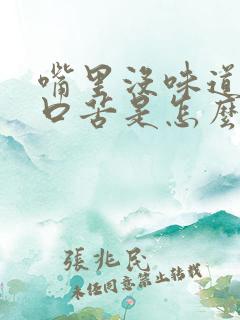 嘴里没味道
口苦是怎麽
張兆民
未经同意禁止转载